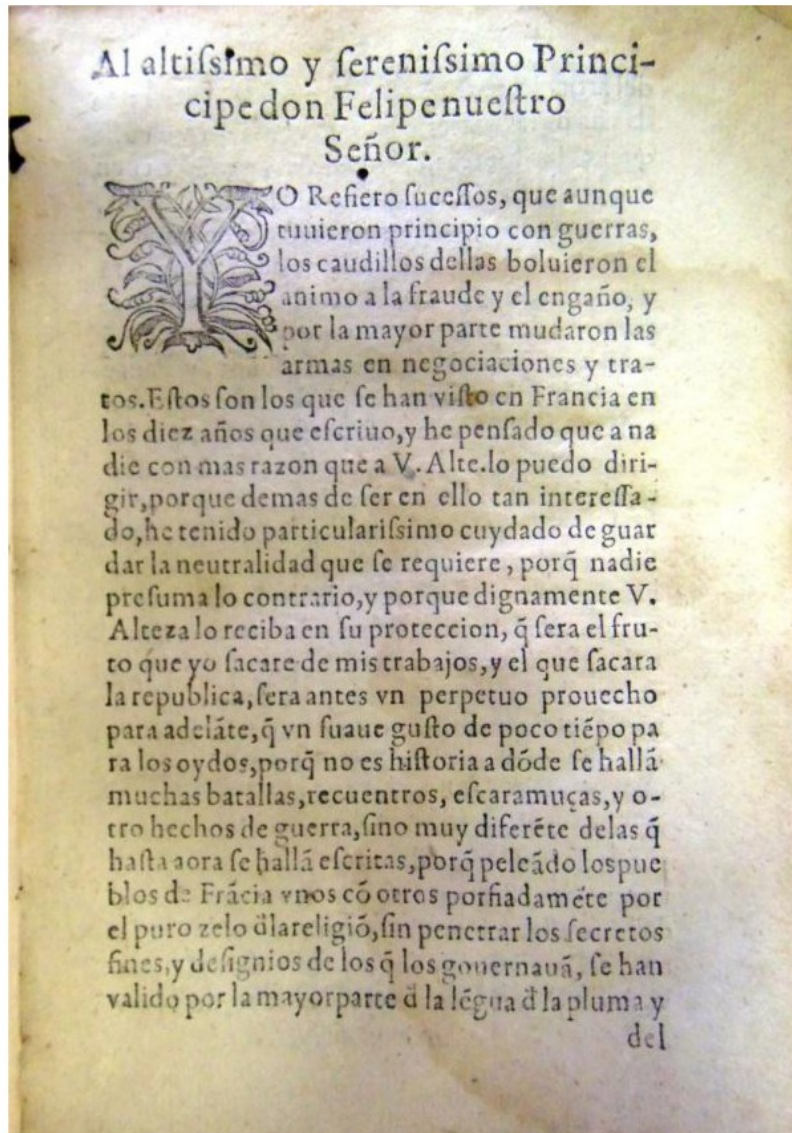 Al altiſsimo y ſereniſsimo Princi-
cipe don Felipe nueſtro
Señor.
YO Refiero ſuceſſos, que aunque
tuuieron principio con guerras,
los caudillos dellas boluieron el
animo a la fraude y el engaño, y
por la mayor parte mudaron las
armas en negociaciones y tra-
tos. Eſtos ſon los que ſe han viſto en Francia en
los diez años que eſcriuo, y he penſado que a na
die con mas razon que a V. Alte. lo puedo diri-
gir, porque demas de ſer en ello tan intereſſa-
do, he tenido particulariſsimo cuydado de guar
dar la neutralidad que ſe requiere, porq̃ nadie
preſuma lo contrario, y porque dignamente V.
Alteza lo reciba en ſu proteccion, q̃ ſera el fru-
to que yo ſacare de mis trabajos, y el que ſacara
la republica, ſera antes vn perpetuo prouecho
para adelãte, q̃ vn ſuaue guſto de poco tiẽpo pa
ra los oydos, porq̃ no es hiſtoria a dõde ſe hallã
muchas batallas, recuentros, eſcaramuças, y o-
tro hechos de guerra, ſino muy diferẽte delas q̃
haſta aora ſe hallã eſcritas, porq̃ peleãdo los pue
blos de Frãcia vnos cõ otros porfiadamẽte por
el puro zelo d̃ la religiõ, ſin penetrar los ſecretos
fines, y deſignios de los q̃ los gouernauã, ſe han
valido por la mayor parte d̃ la lẽgua d̃ la pluma y
del